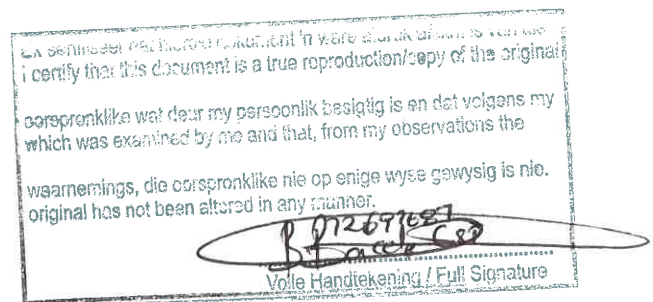 Ek sertifiseer dat hierdie dokument 'n ware afdruk afskrif is van die
I certify that this document is a true reproduction/copy of the original
oorspronklike wat deur my persoonlik besigtig is en dat volgens my
which was examined by me and that, from my observations the
waarnemings, die oorspronklike nie op enige wyse gewysig is nie.
original has not been altered in any manner.
Volle Handtekening / Full Signature